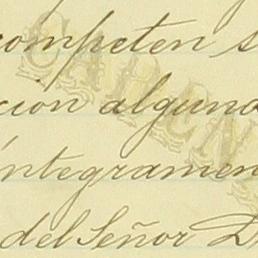 competen s
cion alguna
íntegramen
del Señor D